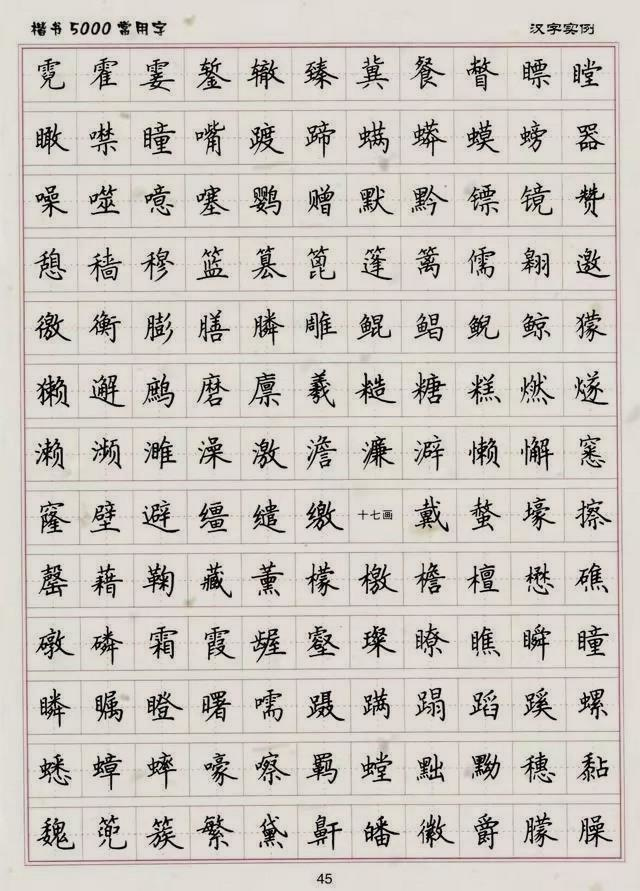 楷书5000常用字 汉字实例
霓霍霎錾辙臻冀餐瞥瞟瞠
瞰噤瞳嘴踱蹄螨蟒蟆螃器
噪噬噫噻鹦赠默黔镖镜赞
憩穑穆篮篡篦篷篱儒翱邀
徼衡膨膳膦雕鲲鲳鲵鲸獴
獭邂鹧磨廪羲糙糖糕燃燧
濑濒濉澡激澹濂澼懒懈窸
窿壁避缰缱缴 十七画 戴螯壕擦
罄藉鞠藏薰檬檄檐檀懋礁
礅磷霜霞龌壑璨瞭瞧瞬瞳
瞵瞩瞪曙嚅蹑蹒蹋蹈蹊螺
蟋蟑蟀嚎嚓羁螳黜黝穗黏
魏篼簇繁黛鼾皤徽爵朦臊
45